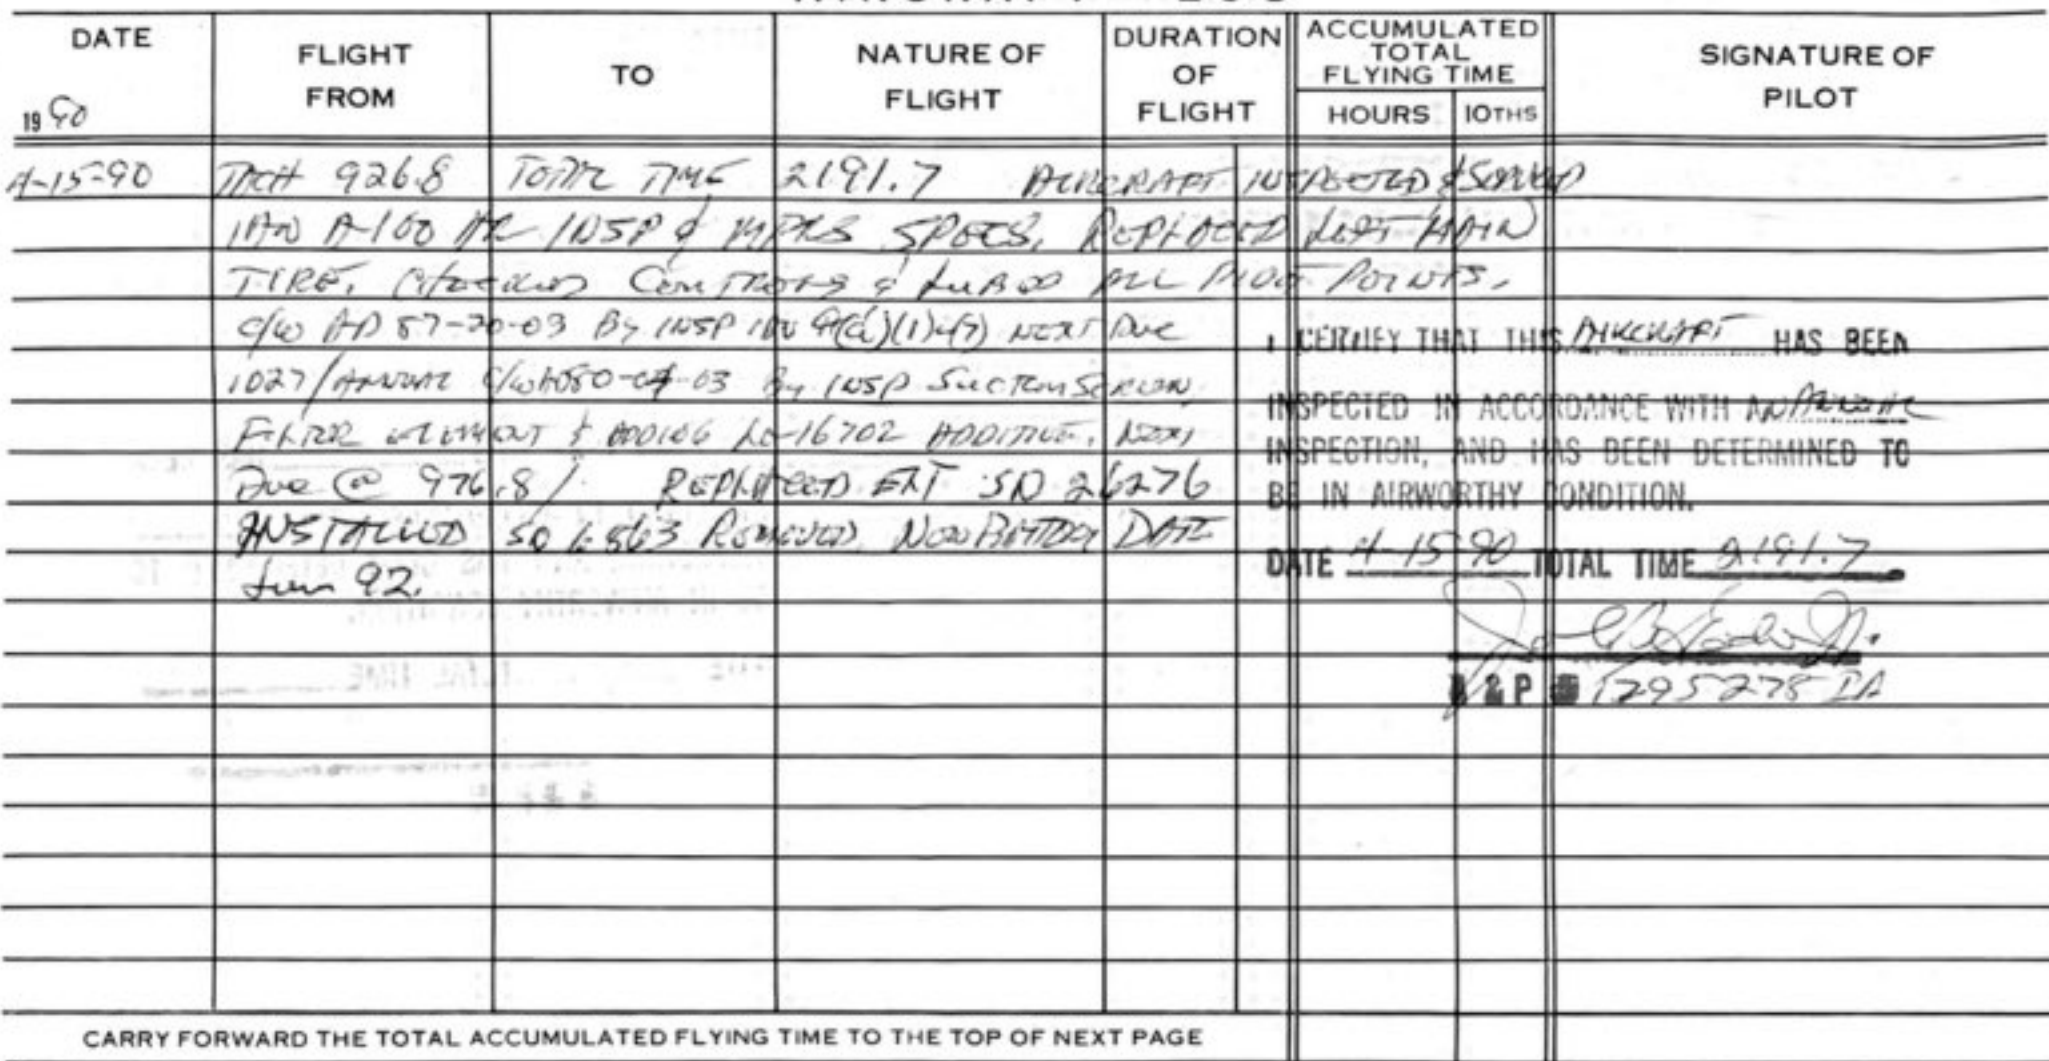 DATE
FLIGHT FROM
TO
NATURE OF FLIGHT
DURATION OF FLIGHT
ACCUMULATED TOTAL FLYING TIME
HOURS 10THS
SIGNATURE OF PILOT
1990
4-15-90 TACH 926.8 TOTAL TIME 2191.7 AIRCRAFT INSPECTED & SERVICED
IAW A-100 HR INSP & MFRS SPECS, REPLACED LEFT MAIN
TIRE, CHECKED CONTROLS & LUBED ALL PIVOT POINTS.
C/W AD 87-20-03 BY INSP IAW NEXT DUE
1027/ANNUAL C/W AD80-04-03 BY INSP SUCTION SCREEN,
FILTER ELEMENT & ADDING LW-16702 ADDITIVE. NEXT
DUE @ 976.8/ REPLACED ELT SN 26276
INSTALLED SN REMOVED. NEW BATTERY DATE
Jun 92.
I CERTIFY THAT THIS AIRCRAFT HAS BEEN
INSPECTED IN ACCORDANCE WITH AN ANNUAL
INSPECTION, AND HAS BEEN DETERMINED TO
BE IN AIRWORTHY CONDITION.
DATE 4-15-90 TOTAL TIME 2191.7
A & P # 1295278 IA
CARRY FORWARD THE TOTAL ACCUMULATED FLYING TIME TO THE TOP OF NEXT PAGE